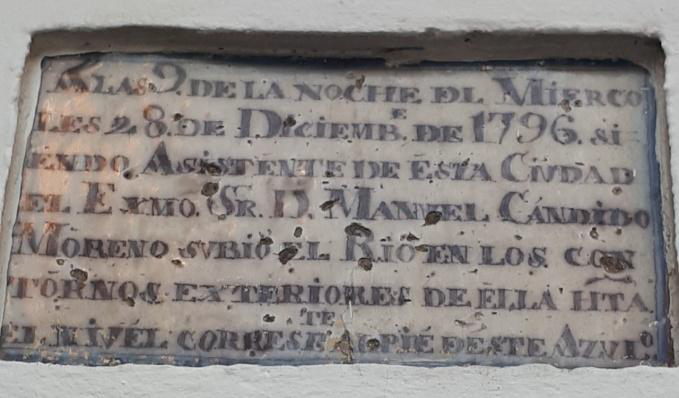 A LAS 9. DE LA NOCHE DL MIERCO
LES 28. DE DICIEMB.E DE 1796. SI=
ENDO ASISTENTE DE ESTA CIUDAD
EL EXMO. SR. D. MANUEL CANDIDO
MORENO SVBIO EL RIO EN LOS CON
TORNOS EXTERIORES DE ELLA HTA
EL NIVEL CORRESP.TE AL PIE DESTE AZVL.O